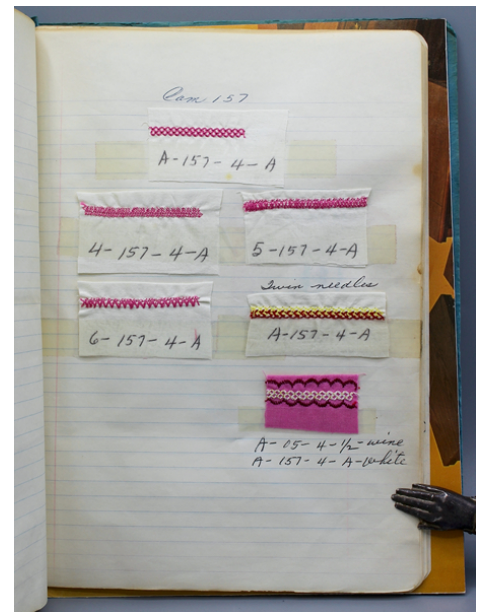 Cam 157
A-157-4-A
4-157-4-A
5-157-4-A
6-157-4-A
Twin needles
A-157-4-A
A-05-4-1/2-wine
A-157-4-A-White